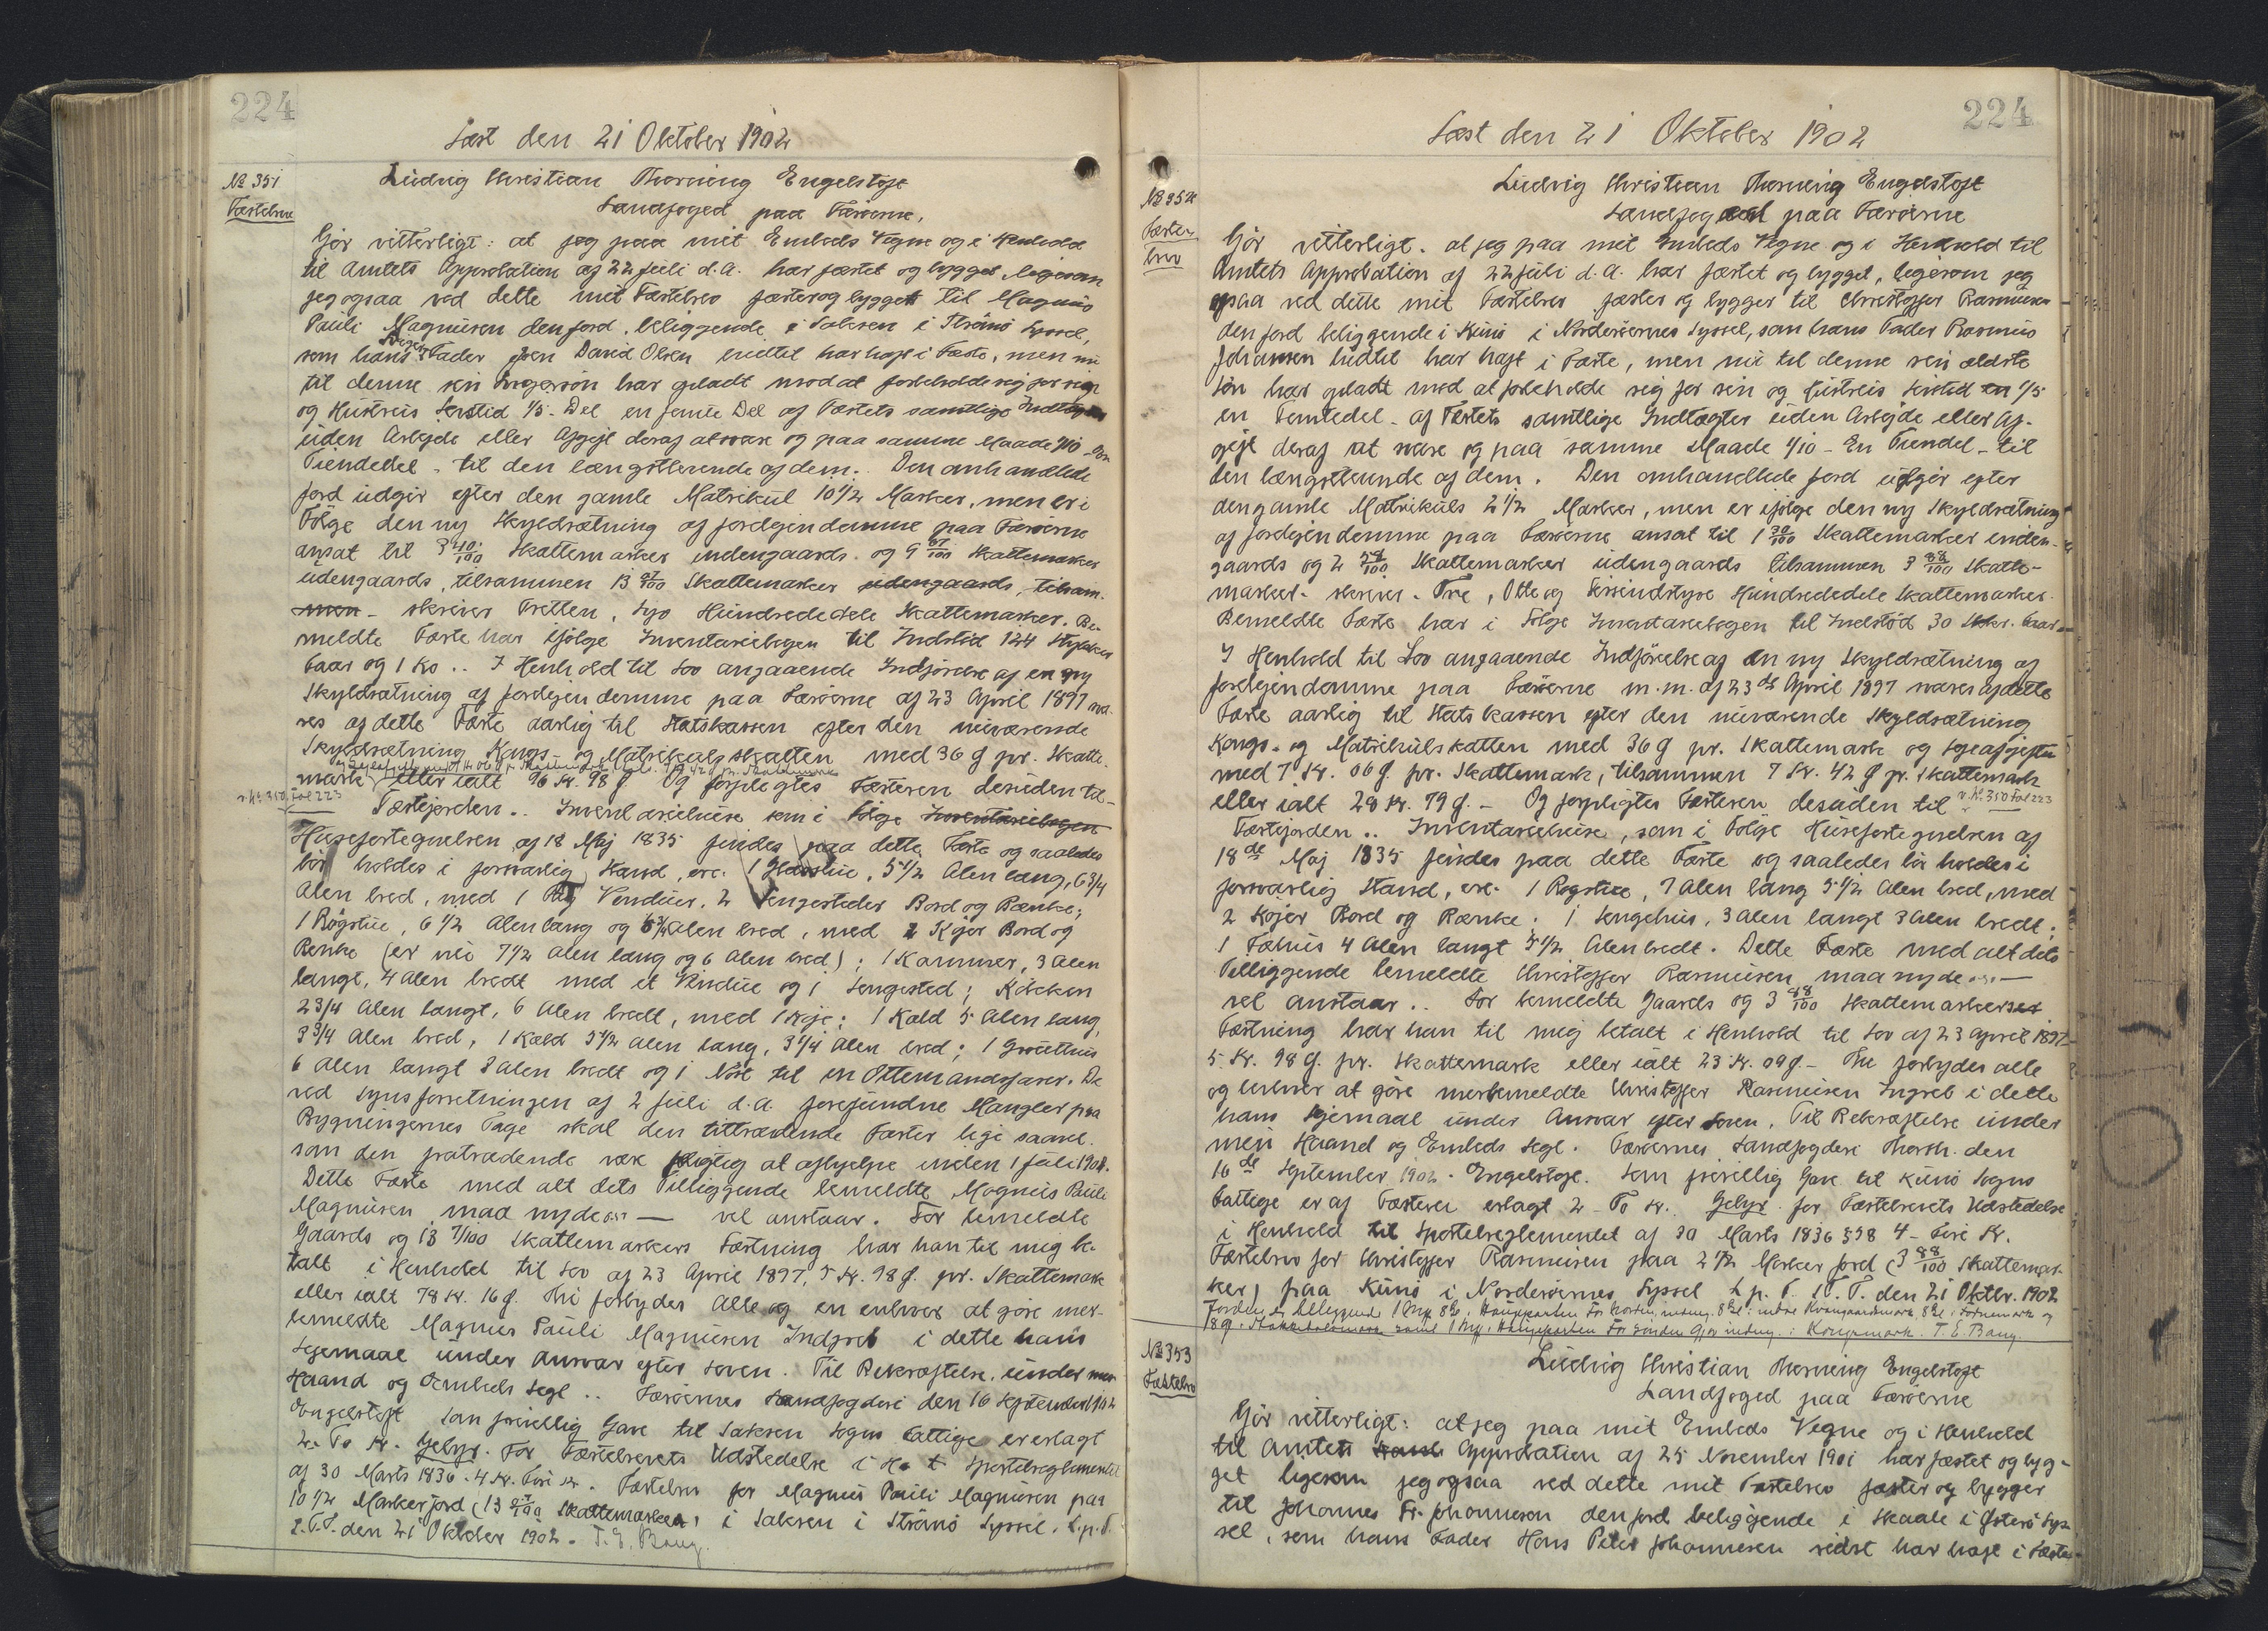 224
Læst den 21 Oktober 1902
№ 351
Fæstebrev
Ludvig Christian Thorning Engelstoft
Landfoged paa Færøerne,
Gör vitterligt: at jeg paa mit Embeds Vegne og i Henhold
til Amtets Approbation af 22 Juli d.A. har fæstet og bygget ligesom
jeg ogsaa ved dette mit Fæstebrev fæster og bygger til Magnus
Pauli Magnusen den Jord, beliggende i Saksen i Strömö Syssel,
som hans Svigerfader Joen David Olsen indtil har haft i Fæste, men nu
til denne sin Svigersön har opladt mod at forbeholde sig for sin
og Hustrus Levetid 1/5- Del en femte Del af Fæstets samtlige Indtægter
uden Arbejde eller Afgift deraf at svare og paa samme Maade 1/10 - En
Tiendedel - til den længstlevende af dem. Den omhandlede
Jord udgör efter den gamle Matrikul 10 1/2 Marker, men er i
Fölge den ny Skyldsætning af Jordejendomme paa Færöerne
ansat til 3 40/100 Skattemarker indengaards og 9 67/100 Skattemarker
udengaards, tilsammen 13 07/100 Skattemarker udengaards, tilsam-
men - skriver Tretten, Syv Hundrededele Skattemarker. Be-
meldte Fæste har ifölge Inventariebogen til Indstöd 124 Stykker
Faar og 1 Ko .. I Henhold til Lov angaaende Indförelse af en ny
Skyldsætning af Jordejendomme paa Færöerne af 23 April 1897 sva-
res af dette Fæste aarlig til Statskassen efter den nuværende
Skyldsætning Kongs- og Matrikulskatten med 36 Ø pr. Skatte-
mark eller ialt 96 Kr. 98 Ø. Og forpligtes Fæsteren desuden til -
v. № 350 Fol 223
Fæstejorden .. Inventariehuse som i Fölge Inventariebogen
Husefortegnelsen af 18 Maj 1835 findes paa dette Fæste og saaledes
bör holdes i forsvarlig Stand, ere: 1 Glasstue, 5 1/2 Alen lang, 6 3/4
Alen bred, med 1 Fag Vinduer, 2 Sengesteder Bord og Bænke;
1 Rögstue, 6 1/2 Alen lang og 6 3/4 Alen bred, med 2 Köjer Bord og
Benke (er nu 7 1/2 Alen lang og 6 Alen bred); 1 Kammer, 3 Alen
langt, 4 Alen bredt med et Vindue og 1 Sengested; Kökken
2 3/4 Alen langt, 6 Alen bredt, med 1 Köje; 1 Kold 5 Alen lang,
3 3/4 Alen bred, 1 Kæld 5 1/2 Alen lang, 3 1/4 Alen bred; 1 Grouthus
6 Alen langt 3 Alen bredt og 1 Nöst til en Ottemandsfarer. De
ved Synsforretningen af 2 Juli d.A. forefundne Mangler paa
Bygningernes Tage skal den tiltrædende Fæster lige saavel
som den fratrædende være pligtig at afhjelpe inden 1 Juli 1904.
Dette Fæste med alt dets Tilliggende bemeldte Magnus Pauli
Magnusen maa nyde o.s.v. — vel anstaar. For bemeldte
Gaards og 13 7/100 Skattemarkers Fæstning har han til mig be-
talt i Henhold til Lov af 23 April 1897, 5 Kr. 98 Ø. pr. Skattemark
eller ialt 78 Kr. 16 Ø. Thi forbydes Alle og en enhver at göre mer-
bemeldte Magnus Pauli Magnusen Indgreb i dette hans
Lejemaal under Ansvar efter Loven. Til Bekræftelse under min
Haand og Embeds Segl .. Færöernes Landfogderi den 16 September 1902
Engelstoft Som frivillig Gave til Saksen Sogns Fattige er erlagt
2. To Kr. Gebyr. For Fæstebrevets Udstedelse i H. t. Sportelreglementet
af 30 Marts 1836 - 4 Kr. Fire Kr. Fæstebrev for Magnus Pauli Magnusen paa
10 1/2 Marker Jord (13 07/100 Skattemarker) i Saksen i Strömö Syssel. L. p. T.
S.T.T. den 21 Oktober 1902. T. E. Bang.
224
Læst den 21 Oktober 1902
№ 352
Fæste-
brev
Ludvig Christian Thorning Engelstoft
Landfoged paa Færöerne
Gör vitterligt: at jeg paa mit Embeds Vegne og i Henhold til
Amtets Approbation af 22 Juli d.A. har fæstet og bygget, ligesom jeg
ogsaa ved dette mit Fæstebrev fæster og bygger til Christoffer Rasmusen
den Jord beliggende i Kunö i Norderöernes Syssel, som hans Fader Rasmus
Johansen hidtil har haft i Fæste, men nu til denne sin ældste
Sön har opladt mod at forbeholde sig for sin og Hustrus Levetid en 1/5
en Femtedel - af Fæstets samtlige Indtægter uden Arbejde eller Af-
gift deraf at svare og paa samme Maade 1/10 - En Tiendel - til
den længstlevende af dem. Den omhandlede Jord udgör efter
den gamle Matrikuls 2 1/2 Marker, men er ifölge den ny Skyldsætning
af Jordejendomme paa Færöerne ansat til 1 30/100 Skattemarker inden-
gaards og 2 58/100 Skattemarker udengaards tilsammen 3 88/100 Skatte-
marker - skriver - Tre, Otte og Firsindstyve Hundrededele Skattemarker.
Bemeldte Fæste har i Fölge Inventariebogen til Indstöd 30 Stkr. Faar
I Henhold til Lov angaaende Indförelse af en ny Skyldsætning af
Jordejendomme paa Færöerne m.m. af 23de April 1897 svares af dette
Fæste aarlig til Statskassen efter den nuværende Skyldsætning
Kongs- og Matrikulskatten med 36 Ø pr. Skattemark og Lejeafgiften
med 7 Kr. 06 Ø. pr. Skattemark, tilsammen 7 Kr. 42 Ø pr. Skattemark
eller ialt 28 Kr. 79 Ø. - Og forpligtes Fæsteren desuden til v. № 350 Fol 223
Fæstejorden .. Inventariehuse, som i Fölge Husefortegnelsen af
18de Maj 1835 findes paa dette Fæste og saaledes bör holdes i
forsvarlig Stand, ere: 1 Rogstue, 7 Alen lang 5 1/2 Alen bred, med
2 Köjer Bord og Bænke; 1 Sengehus, 3 Alen langt 3 Alen bredt;
1 Fæhus 4 Alen langt 3 1/2 Alen bredt. Dette Fæste med alt dets
Tilliggende bemeldte Christoffer Rasmusen maa nyde o.s.v. —
vel anstaar .. For bemeldte Gaards og 3 88/100 Skattemarkers
Fæstning har han til mig betalt i Henhold til Lov af 23 April 1897
5 Kr. 98 Ø. pr. Skattemark eller ialt 23 Kr. 09 Ø. - Thi forbydes alle
og enhver at göre merbemeldte Christoffer Rasmusen Ingreb i dette
hans Lejemaal under Ansvar efter Loven. Til Bekræftelse under
min Haand og Embeds Segl. Færöernes Landfogderi Thorsh. den
16de September 1902. Engelstoft. Som frivillig Gave til Kunö Sogns
Fattige er af Fæsteren erlagt 2 - To Kr. Gebyr for Fæstebrevets Udstedelse
i Henhold til Sportelreglementet af 30 Marts 1836 § 58 4 - Fire Kr.
Fæstebrev for Christoffer Rasmusen paa 2 1/2 Marker Jord (3 88/100 Skattemar-
ker) paa Kunö i Norderöernes Syssel L. p. T. S.T.T. den 21 Oktbr. 1902
T. E. Bang.
№ 353
Fæstebrev
Ludvig Christian Thorning Engelstoft
Landfoged paa Færöerne
Gör vitterligt: at jeg paa mit Embeds Vegne og i Henhold
til Amtets Approbation af 25 November 1901 har fæstet og byg-
get ligesom jeg ogsaa ved dette mit Fæstebrev fæster og bygger
til Johannes Fr. Johannesen den Jord beliggende i Skaale i Österö Sys-
sel, som hans Fader Hans Peter Johannesen sidst har haft i Fæste